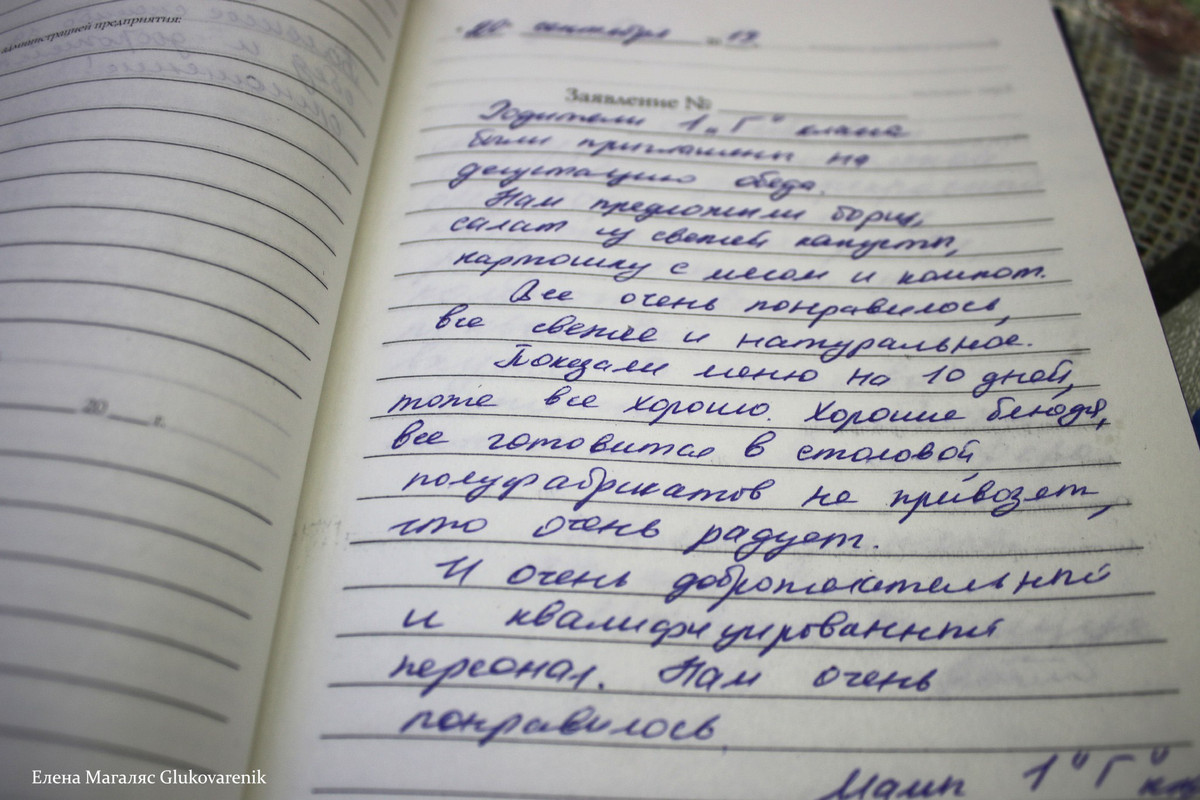 администрацией предприятия:
20 г.
20 сентября 19
Заявление №
Родители 1 „Г" класса
были приглашены на
дегустацию обеда.
Нам предложили борщ,
салат из свежей капусты,
картошку с мясом и компот.
Все очень понравилось,
все свежее и натуральное.
Показали меню на 10 дней,
тоже все хорошо. Хорошие блюда,
все готовится в столовой,
полуфабрикатов не привозят,
что очень радует.
И очень доброжелательный
и квалифицированный
персонал. Нам очень
понравилось
Мамы 1 "Г"
Елена Магаляс Glukovarenik